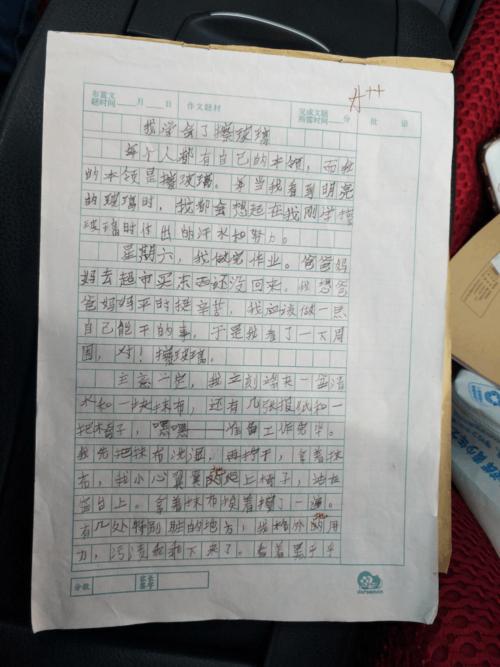 布置文题时间 月 日 作文题材 完成文题所需时间 分 批 语
A++
我学会了擦玻璃
每个人都有自己的本领，而我
的本领是擦玻璃。每当我看到明亮
的玻璃时，我都会想起在我刚学擦
玻璃时付出的汗水和努力。
星期六，我做完作业。爸爸妈
妈去超市买东西还没回来，我想爸
爸妈妈平时很辛苦，我应该做一点
自己能干的事，于是我看了一下周
围，对！擦玻璃。
主意一定，我立刻端来一盆清
水和一块抹布，还有几张报纸和一
把木凳子，嘿嘿——准备工作完毕。
我先把抹布洗湿，再拧干，拿着抹
布，我小心翼翼地爬上椅子，站在
窗台上。拿着抹布顺着擦了一遍。
有几处特别脏的地方，我格外地用
力，污渍都擦下来了。看着黑乎乎
分数